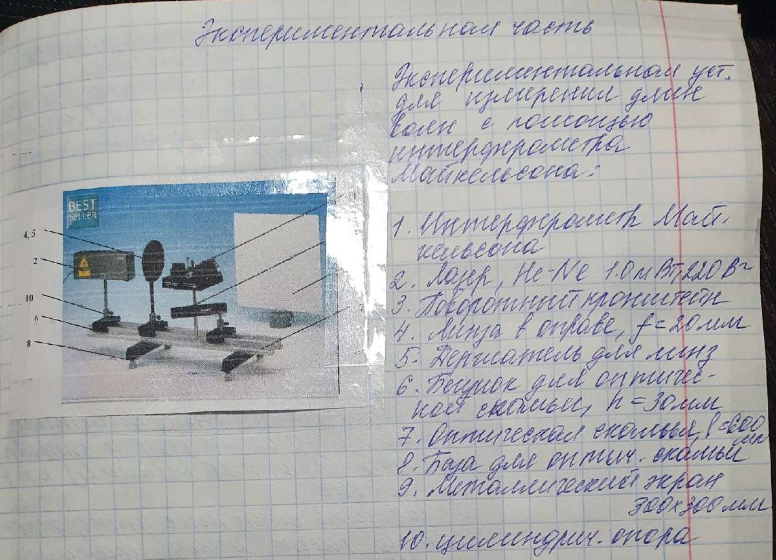 Экспериментальная часть
Экспериментальная уст.
для измерения длин
волн с помощью
интерферометра
Майкельсона:
1. Интерферометр Май-
кельсона
2. Лазер, He-Ne 1.0 мВт, 220 В~
3. Поворотный кронштейн
4. Линза в оправе, f=20мм
5. Держатель для линз
6. Бегунок для оптичес-
кой скамьи, h=30мм
7. Оптическая скамья, l=600
мм
8. База для оптич. скамьи
9. Металлический экран
300х300мм
10. цилиндрич. опора
BEST
SELLER
4, 5
2
10
6
8